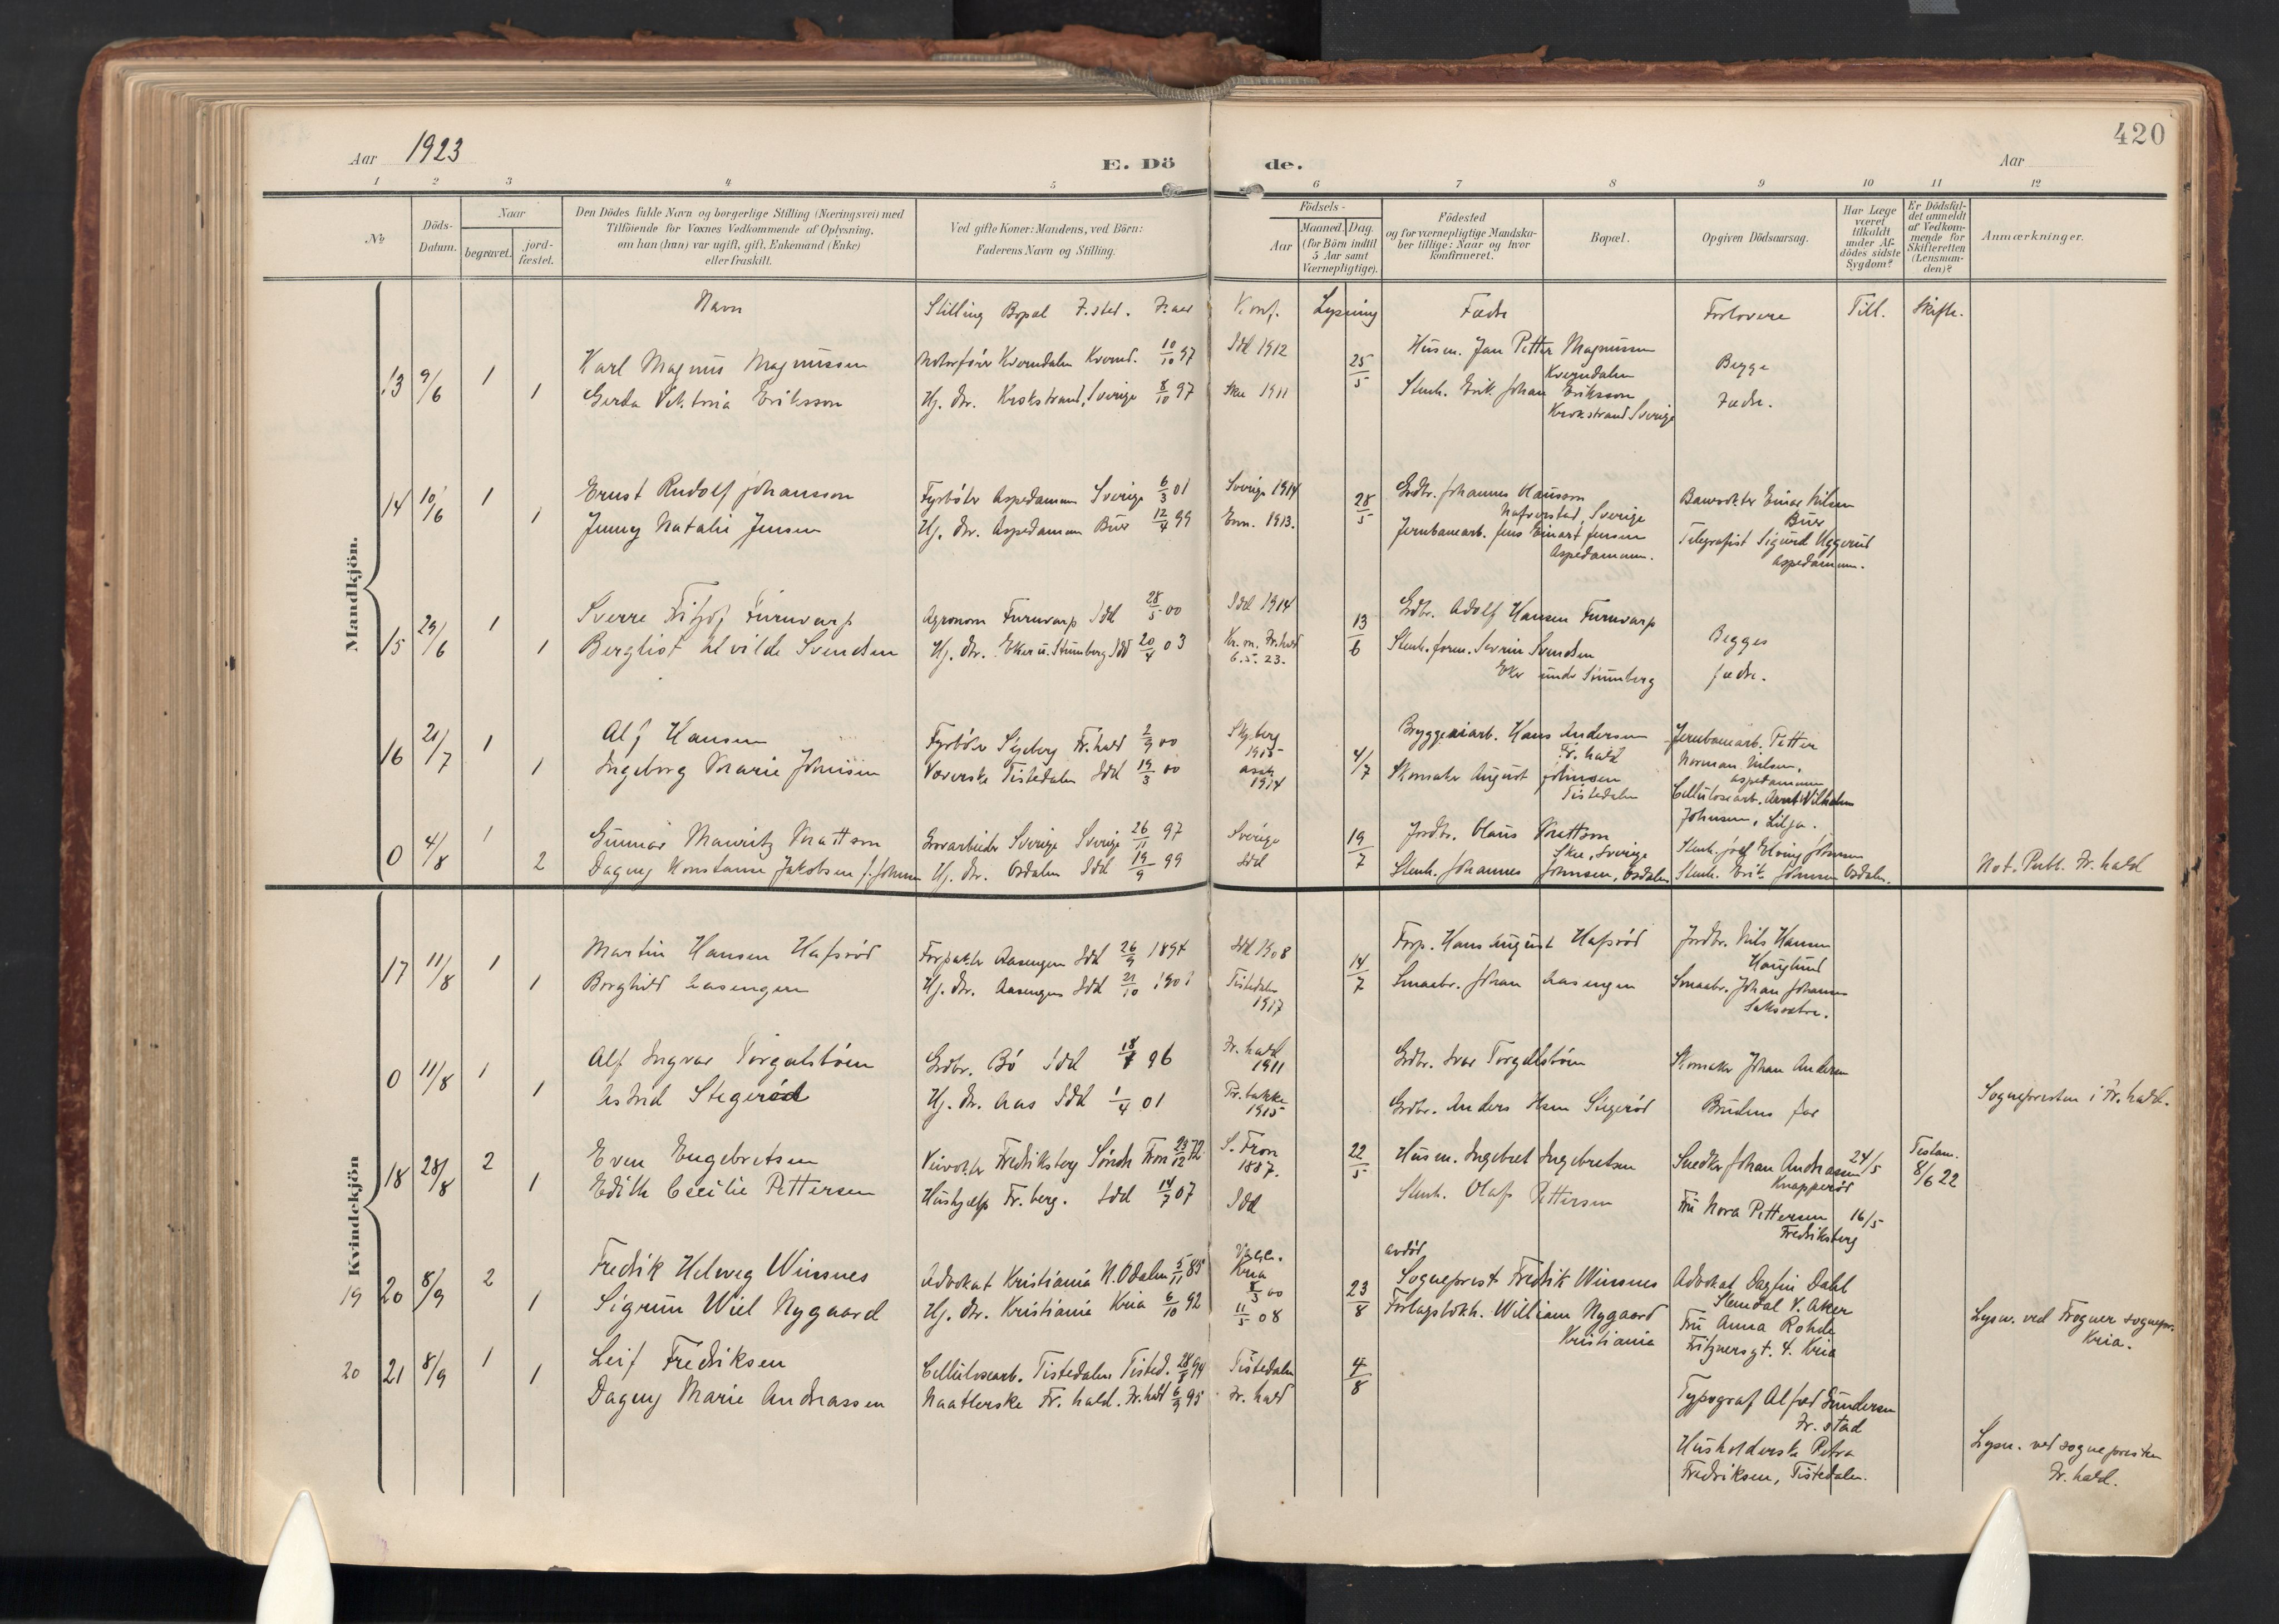 420
Aar 1923
E. Dö de.
Aar
1 2 3 4 5 6 7 8 9 10 11 12
No
Döds-
Datum.
Naar
begravet.
jord-
fæstet.
Den Dödes fulde Navn og borgerlige Stilling (Næringsvei) med
Tilföiende for Voxnes Vedkommende af Oplysning,
om han (hun) var ugift, gift, Enkemand (Enke)
eller fraskilt.
Ved gifte Koner: Mandens, ved Börn:
Faderens Navn og Stilling.
Födsels-
Aar
Maaned. Dag.
(for Börn indtil
5 Aar samt
Værnepligtige).
Födested
og for værnepligtige Mandska-
ber tillige: Naar og hvor
konfirmeret.
Bopæl.
Opgiven Dödsaarsag.
Har Læge
været
tilkaldt
under Af-
dödes sidste
Sygdom?
Er Dödsfal-
det anmeldt
af Vedkom-
mende for
Skifteretten
(Lensman-
den)?
Anmærkninger.
Mandkjön.
Kvindekjön
Navn Stilling Bopæl F.sted. F.aar Konf. Lysning Fædre Forlovere Till. Skifte.
13 9/6 1 Karl Magnus Magnussen Motorfører Kverndalen Kvernd. 10/10 97 Idd 1912 25/5 Husm. Jan Petter Magnussen
Kverndalen Begge
1 Gerda Viktoria Eriksson Hj. dtr. Krokstrand, Sverige 8/10 97 Skee 1911 Stenh. Erik Johan Eriksson
Krokstrand Sverige Fædre.
14 10/6 1 Ernst Rudolf Johansson Fyrbøter Aspedammen Sverige 6/3 01 Sverige 1914 28/5 Grdbr. Johannes Olausson
Nafverstad, Sverige Banevokter Einar Nilsen
Buer
1 Jenny Natalie Jensen Hj. dtr. Aspedammen Buer 12/4 99 Enn. 1913. Jernbanearb. Jens Einart Jensen
Aspedammen. Telegrafist Sigurd Uggerud
Aspedammen.
15 29/6 1 Sverre Fritjof Furuvarp Agronom Furuvarp Idd 28/5 00 Idd 1914 13/6 Grdbr. Adolf Hansen Furuvarp Begges
1 Bergliot Alvilde Svendsen Hj. dtr. Eker u. Stumberg Idd 20/4 03 Kr. m. Fr.hald
6.5.23. Stenh. form. Severin Svendsen
Eker under Stumberg fædre.
16 21/7 1 Alf Hansen Fyrbøter Skjeberg Fr.hald 2/9 00 Skjeberg
1915 4/7 Bryggeriarb. Hans Andersen
Fr. hald Jernbanearb. Petter
Norman Nilsen,
Aspedammen
1 Ingeborg Marie Johnsen Væverske Tistedalen Idd 19/3 00 1914 Skomaker August Johnsen
Tistedalen Cellulosearb. Arnt Vilhelm
Johnsen, Lilja.
0 4/8 1 Gunnar Mauritz Mattson Grovarbeider Sverige Sverige 26/11 97 Sverige 19/7 Jordbr. Olaus Mattson
Skee, Sverige
2 Dagny Konstanse Jakobsen f. Johnsen Hj. dtr. Osdalen Idd 19/9 99 Idd Stenh. Johannes Johnsen, Osdalen Stenh. Erik Johnsen Osdalen. Not. Publ. Fr. hald
17 11/8 1 Martin Hansen Hafsrød Forpakter Aasengen Idd 26/9 1894 Idd 1908 14/7 Forp. Hans August Hafsrød Jordbr. Nils Hansen
Hauglund
1 Borghild Aasengen Hj. dtr. Aasengen Idd 21/10 1901 Tistedalen
1917 Smaabr. Johan Aasengen Smaabr. Johan Johansen
0 11/8 1 Alf Ingvar Torgalsbøen Grdbr. Bø Idd 18/7 96 Fr. hald
1911 Grdbr. Ivar Torgalsbøen Skomaker Johan Andersen
1 Astrid Stegerød Hj. dtr. Aas Idd 1/4 01 Fr. bakke
1915 Grdbr. Anders Hsen Stegerød Brudens far Sognepresten i Fr. hald.
18 28/8 2 Even Engebretsen Veivokter Fredriksberg Søndr. Fron 23/12 72 S. Fron
1887. 22/5 Husm. Ingebret Ingebretsen Snedker Johan Andreassen
Knapperød 24/5 Testam.
8/6 22
1 Edith Cecilie Pettersen Hushjælp Fr. berg. Idd 14/7 07 Idd Stenh. Olaf Pettersen Fru Nora Pettersen
Fredriksberg 16/5
19 20 8/9 2 Fredrik Helweg Winsnes Advokat Kristiania N. Odalen 5/11 85 Kria
8/3 00 23/8 avdød
Sogneprest Fredrik Winsnes Advokat Dagfin Dahl
Stendal V. Aker
1 Sigrun Wiel Nygaard Hj. dtr. Kristiania Kria 6/10 92 11/5 08 Forlagsbokh. William Nygaard
Kristiania Fru Anna Rohde
Fritznersgt. 4. Kria Lysn. ved Frogner sognepr.
Kria.
20 21 8/9 1 Leif Fredriksen Cellulosearb. Tistedalen Tisted. 28/8 94 Tistedalen 4/8 Typograf Alfred Gundersen
Fr. stad
1 Dagny Marie Andreassen Naatlerske Fr. hald. Fr. hald 6/9 95 Fr. hald Husholderske Petra
Fredriksen, Tistedalen. Lysn. ved sognepresten
Fr. hald.